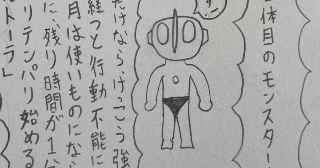 体目のモンスター
す。
だけなら、けっこう強
経つと行動不能に
月は使いものにな
に、残り時間が1分
リテンパリ始める
トーラ」